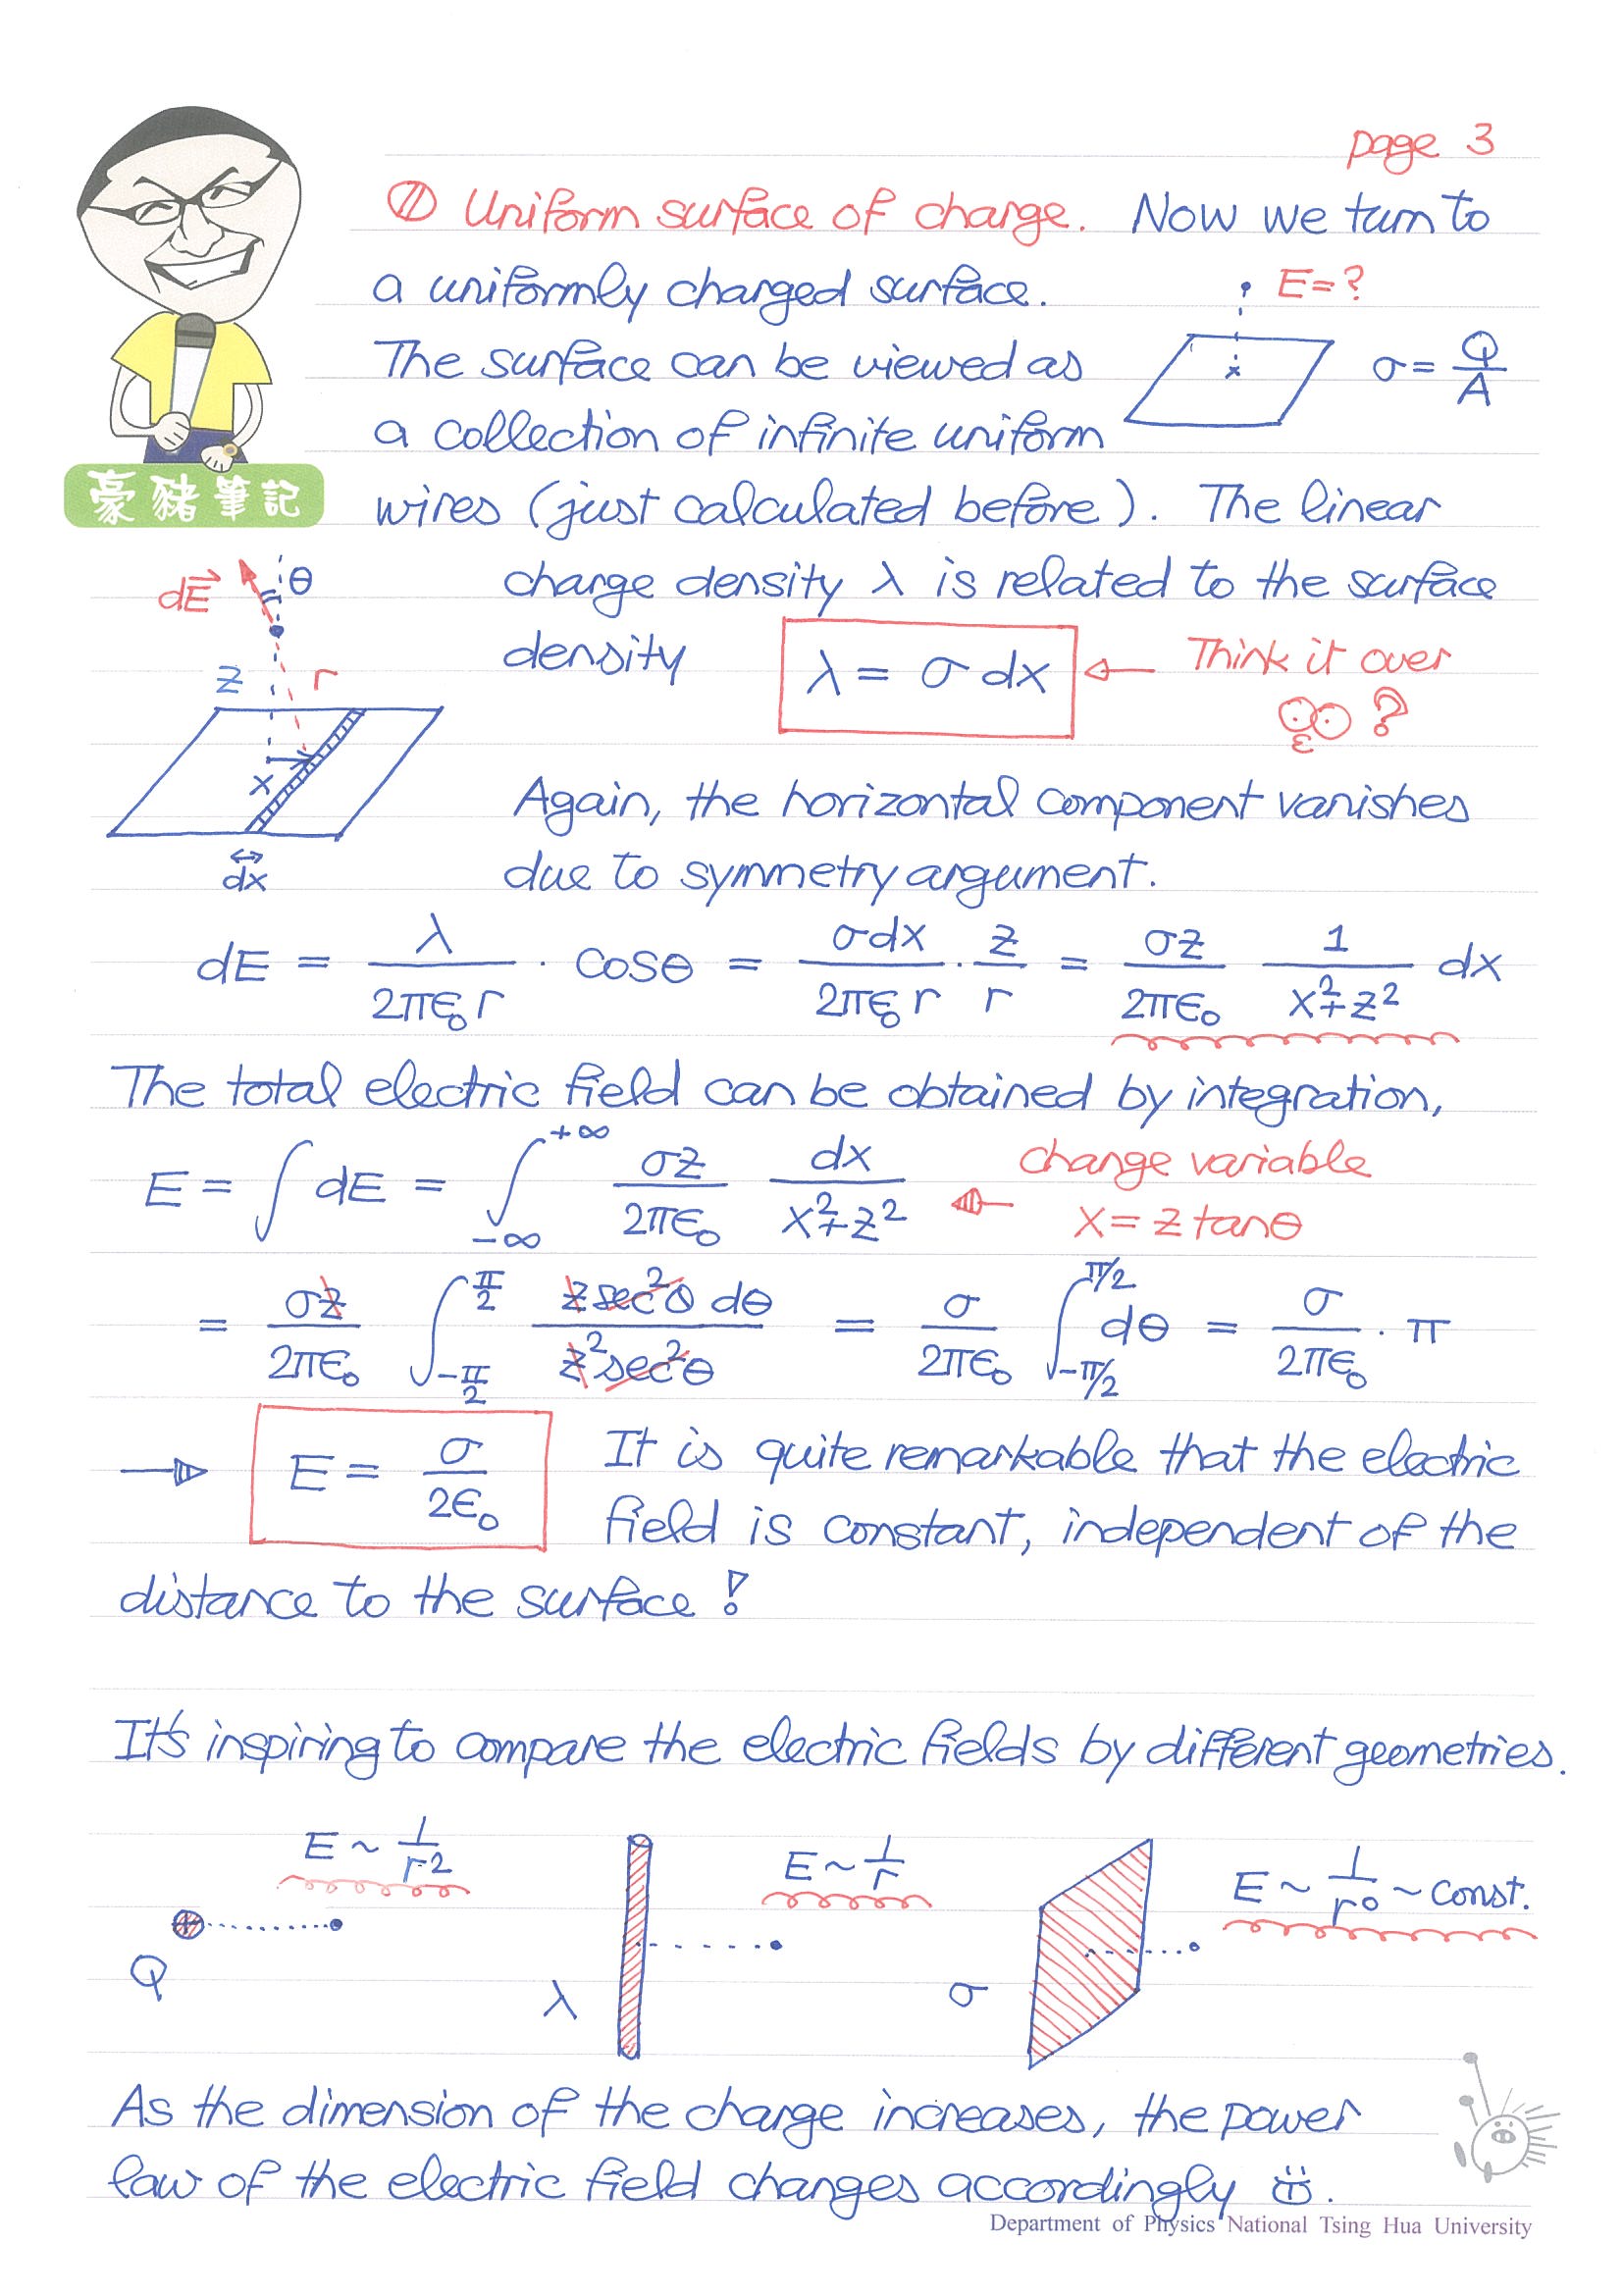 page 3
⑦ Uniform surface of charge. Now we turn to
a uniformly charged surface.
E=?
The surface can be viewed as
σ = Q/A
a collection of infinite uniform
豪豬筆記
wires (just calculated before). The linear
charge density λ is related to the surface
density
λ = σ dx
Think it over
?
dE θ
z r
x
dx
Again, the horizontal component vanishes
due to symmetry argument.
dE = λ/(2πε₀r) · cosθ = σdx/(2πε₀r) · z/r = σz/(2πε₀) 1/(x²+z²) dx
The total electric field can be obtained by integration,
E = ∫ dE = ∫_{-∞}^{+∞} σz/(2πε₀) dx/(x²+z²)
change variable
x = z tanθ
= σz/(2πε₀) ∫_{-π/2}^{π/2} z sec²θ dθ/(z² sec²θ) = σ/(2πε₀) ∫_{-π/2}^{π/2} dθ = σ/(2πε₀) · π
→ E = σ/(2ε₀)
It is quite remarkable that the electric
field is constant, independent of the
distance to the surface!
It's inspiring to compare the electric fields by different geometries.
E ~ 1/r²
E ~ 1/r
E ~ 1/r⁰ ~ const.
Q
λ
σ
As the dimension of the charge increases, the power
law of the electric field changes accordingly ☺.
Department of Physics National Tsing Hua University